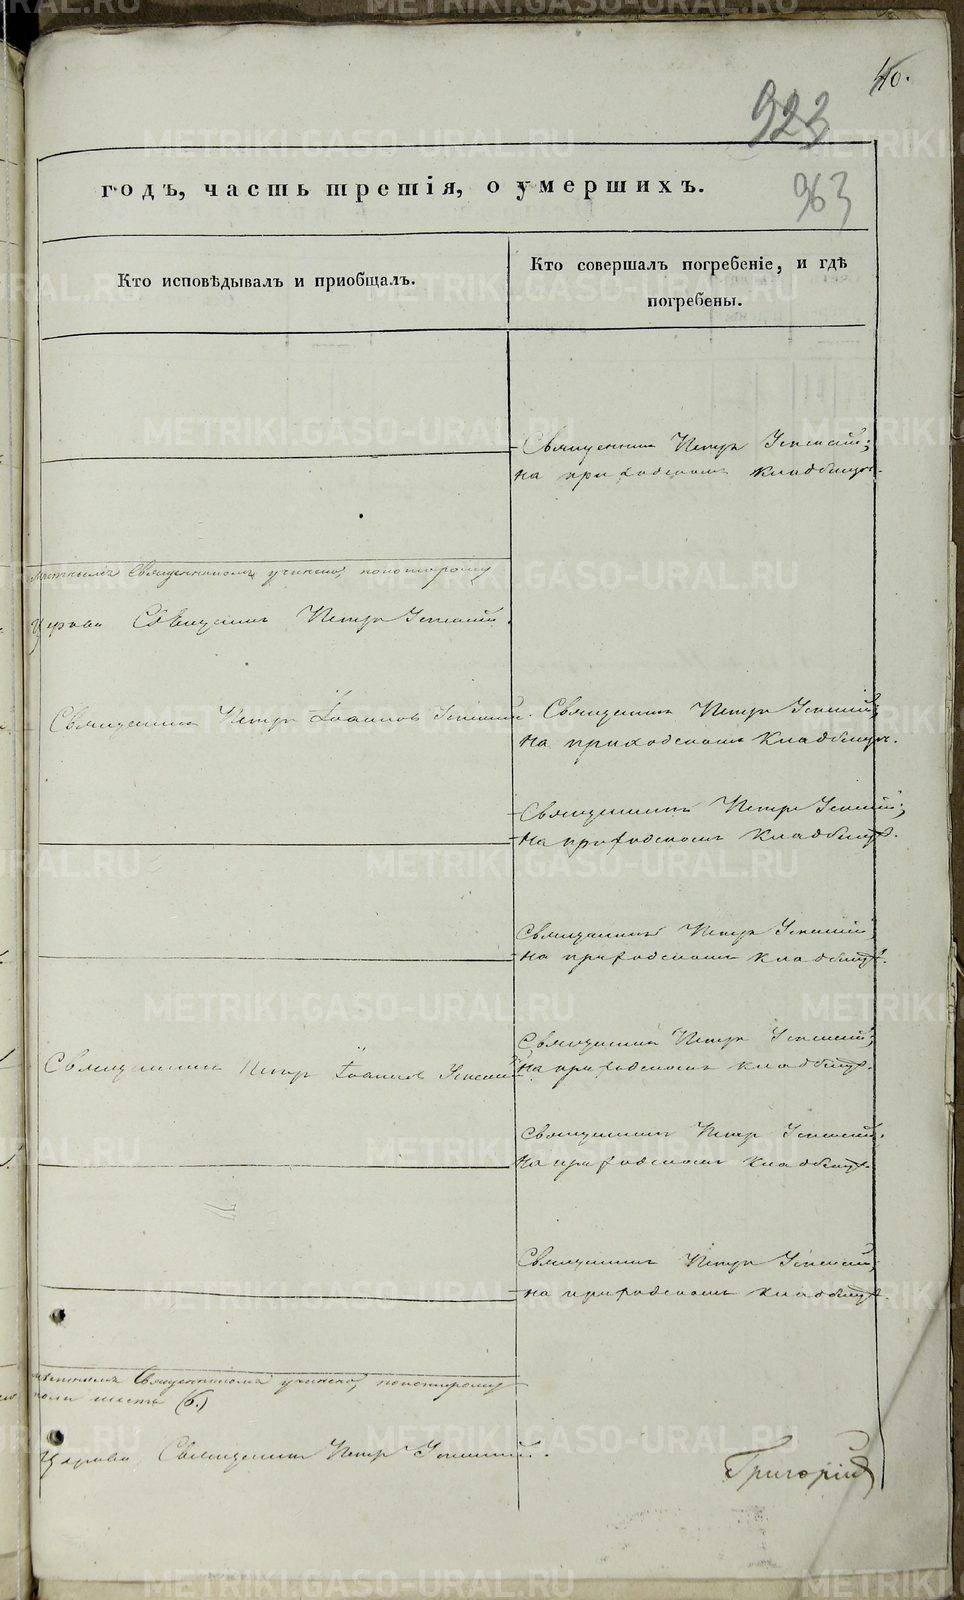 40.
923
годъ, часть третія, о умершихъ.
963
Кто исповѣдывалъ и приобщалъ.
Кто совершалъ погребеніе, и гдѣ
погребены.
Священникъ Петръ Успенскій;
на приходскомъ кладбищѣ.
Священникомъ учинено, по которому
Церкви Священникъ Петръ Успенскій.
Священникъ Петръ Іоанновъ Успенскій.
Священникъ Петръ Успенскій;
на приходскомъ кладбищѣ.
Священникъ Петръ Успенскій;
на приходскомъ кладбищѣ.
Священникъ Петръ Успенскій;
на приходскомъ кладбищѣ.
Священникъ Петръ Іоанновъ Успенскій
Священникъ Петръ Успенскій;
на приходскомъ кладбищѣ.
Священникъ Петръ Успенскій;
на приходскомъ кладбищѣ.
Священникъ Петръ Успенскій;
на приходскомъ кладбищѣ.
Священникомъ учинено, по которому
(6.)
Церкви Священникъ Петръ Успенскій.
Григорій
METRIKI.GASO-URAL.RU